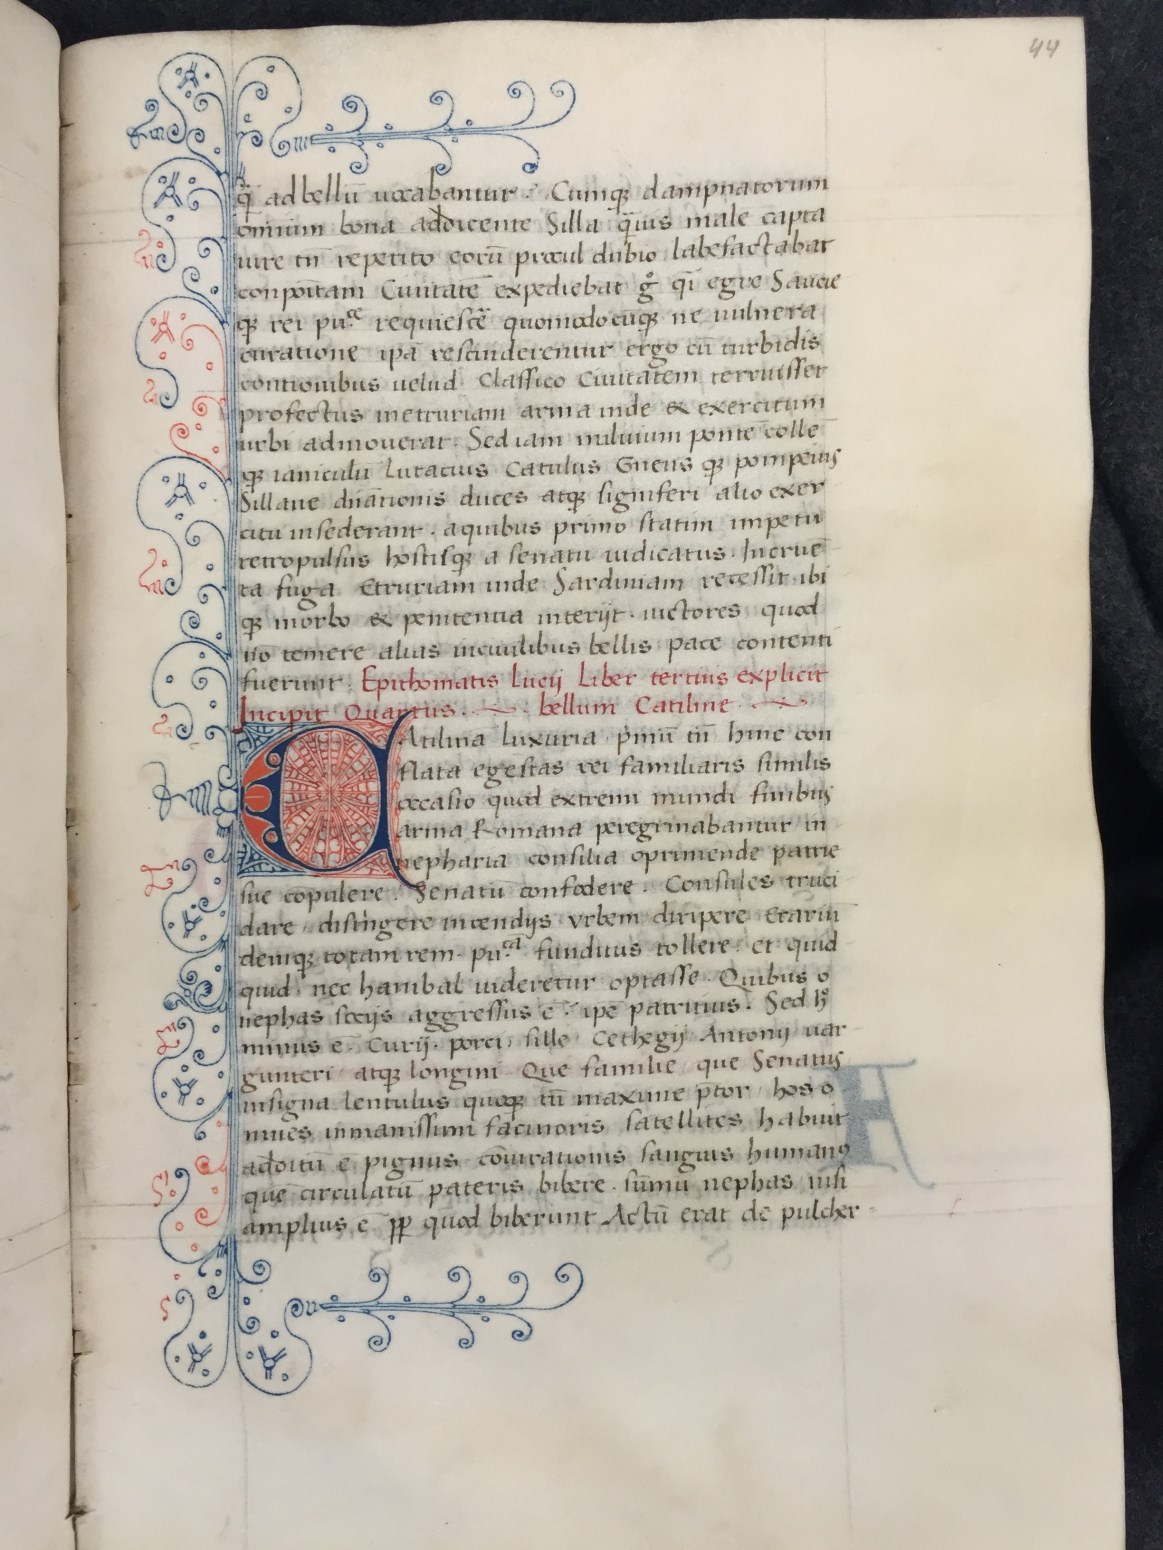 44
q̄ ad bellū uocabantur. Cumqꝫ dampnatorum
omnium bona addicente Silla q̄uis male capta
iure tn̄ repetito eorū procul dubio labefactabat
conpoitam Ciuitatē expediebat gͦ q̄i egre Saucie
qꝫ rei pu.ce requiescē quomodocūqꝫ ne uulnera
curatione ipā rescinderentur ergo cū turbidis
contionibus uelud Classico Ciuitatem terruisset
profectus inetruriam arma inde & exercitum
urbi admouerat. Sed iam miluium ponte collē
qꝫ ianiculū Lutacius Catulus Gneus qꝫ pompeius
Sillane dn̄ationis duces atqꝫ signiferi alio exer
citu insederant. aquibus primo statim impetu
retropulsus hostisqꝫ a senatu iudicatus. Incruē
ta fuga Etruriam inde Sardiniam recessit ibi
qꝫ morbo & penitentia interijt. uictores quod
nō temere alias inciuilibus bellis pace contenti
fuerunt. Epithomatis Lucij Liber tertius explicit
Incipit Quartus. bellum Catiline
CAtilina luxuria p̄mū tn̄ hinc con
flata egestas rei familiaris similis
occasio quod extremi mundi finibus
arma Romana peregrinabantur in
nepharia consilia oprimende patrie
sue copulere. Senatū confodere. Consules truci
dare distringere incendijs vrbem diripere Erariū
deniqꝫ totam rem pu.ca funditus tollere. et quid
quid nec hanibal uideretur optasse. Quibus o
nephas socijs aggressus ē. ipē patricius. Sed h̄ͦ
minus ē. Curij. porci sille Cethegij Antonij uar
gunteri atqꝫ longini Que familie que Senatus
insigna lentulus quoqꝫ tū maxime p̄tor hos o
mnes inmanissimi facinoris satellites habuit
additū ē pignus cōiurationis sangius humanꝰ
quē circulatū pateris bibere. sūmū nephas nisi
amplius ē ꝓp quod biberunt Actū erat de pulcher